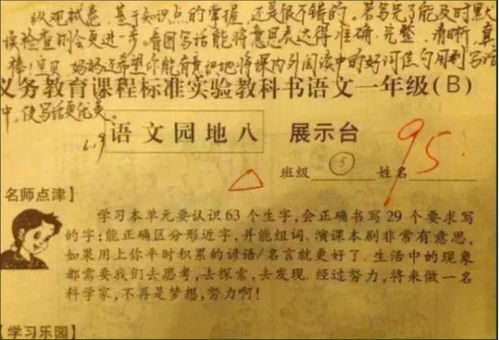 纵观试卷，基于知识点的掌握，还是很不错的。若写完了能及时默
读检查则会更进一步。看图写话能将意思表达得准确、完整、清晰，真
棒！宝贝，妈妈还希望你能有意识地将课内外阅读中的好词佳句用到写话
义务教育课程标准实验教科书语文一年级(B)
中，使写话更优美。
6.19
语文园地八 展示台
95
班级 (5) 姓名
名师点津】
学习本单元要认识63个生字，会正确书写29个要求写
的字；能正确区分形近字，并能组词、演课本剧非常有意思，
如果用上你平时积累的谚语/名言就更好了。生活中的现象
都需要我们去思考，去探索，去发现。经过努力，将来做一名
科学家，不再是梦想，努力啊！
【学习乐园】